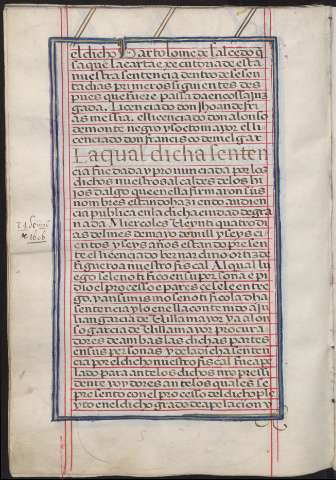 el dicho Bartolome de salcedo q
saque la carta executoria de esta
nuestra sentencia dentro de sesen
ta dias primeros siguientes des
pues que fuere pasada en cosa juz
gada. Licenciado don Jhoan de fri
as mesia. el licenciado don alonso
de monte negro y sotomayor el li
cenciado don francisco de melgar
La qual dicha senten
cia fue dada y pronunciada por los
dichos nuestros alcaldes de los hi
jos dalgo que en ella firmaron sus
nombres estando haziendo audien
cia publica en la dicha ciudad de gra
nada Miercoles veynti quatro di
as del mes de mayo de mill y seys ci
entos y seys años estando presen
te el licenciado bernardino ortiz d
figueroa nuestro fiscal Al qual lu
ego se le notifico en su persona e pi
dio el processo e parescele le entre
go. y ansi mismo se notifico la dha
sentencia y lo en ella contenido a ju
an garcia de Villamayor y a alon
so garcia de Villamayor procura
dores de ambas las dichas partes
en sus personas y de la dicha senten
cia por el dicho nuestro fiscal fue ape
lado para ante los dichos nro presi
dente y oydores ante los quales se
presento con el processo del dicho ple
yto en el dicho grado de apelacion y
1606